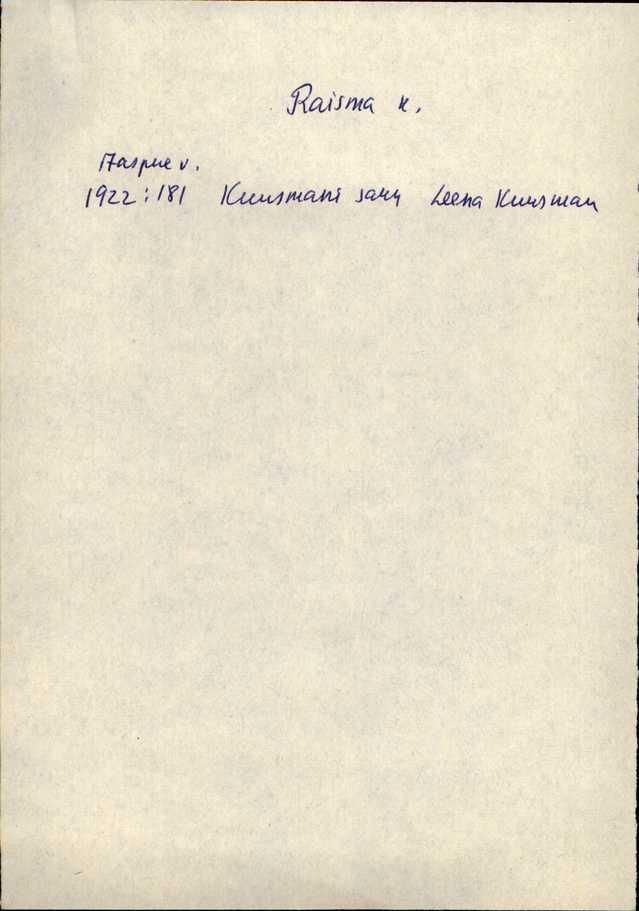 Raisma k.
Aaspere v.
1922:181 Kuusmani saun Leena Kuusman